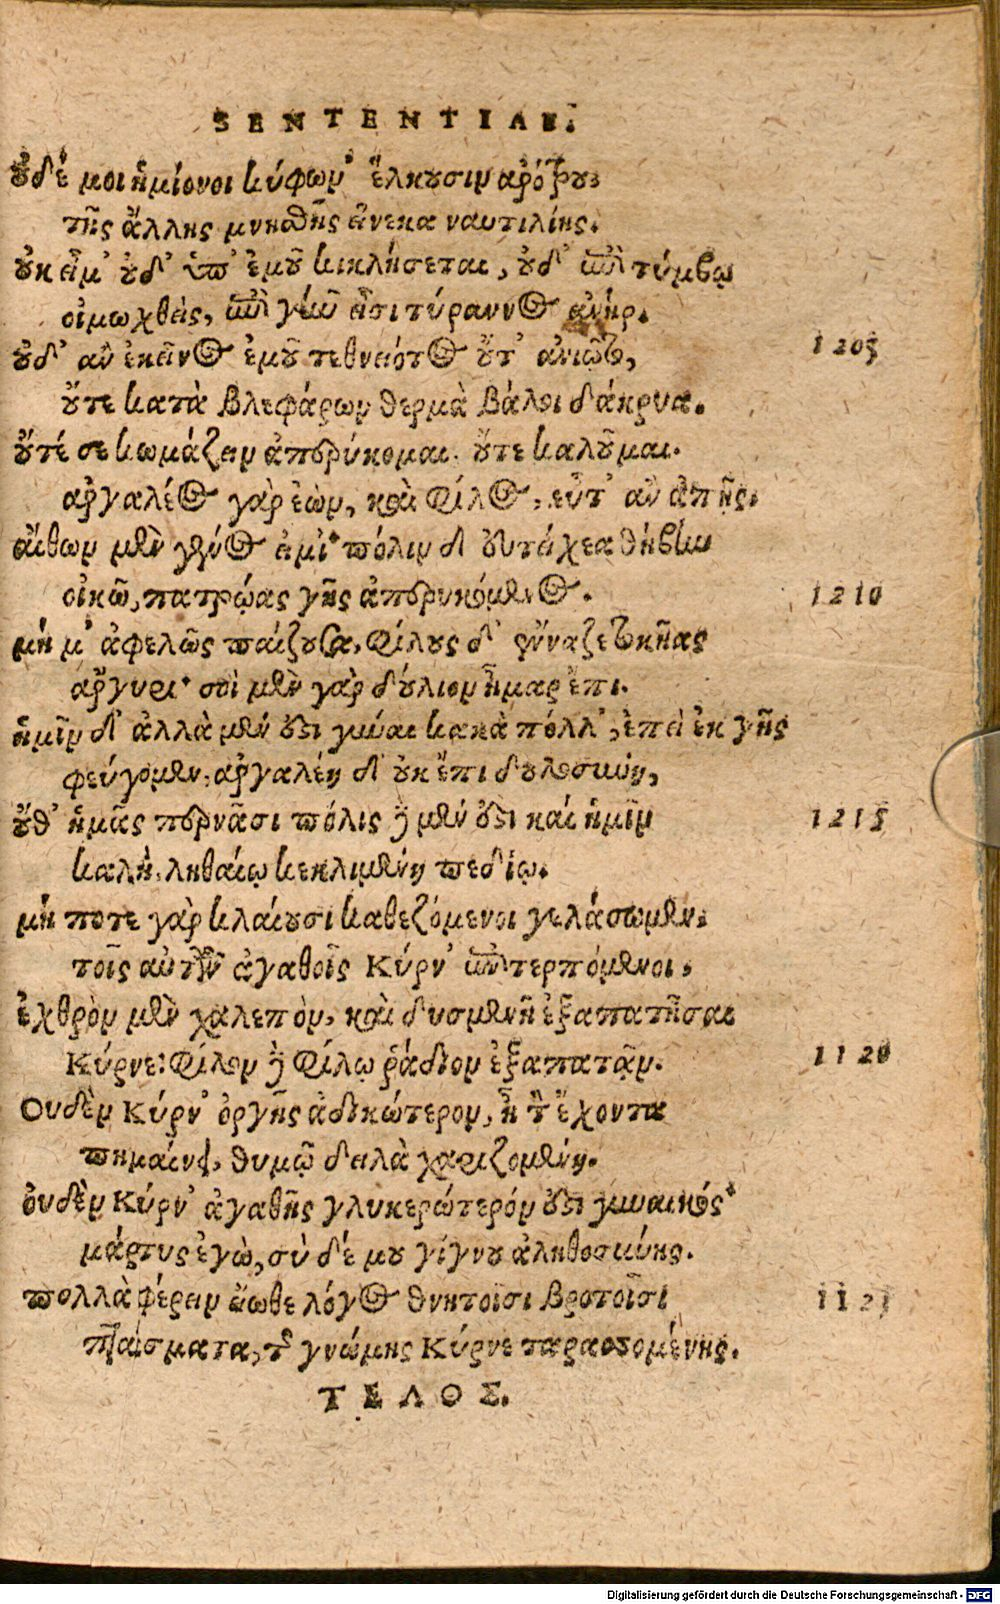 SENTENTIAE.
οὐδέ μοι ἡμίονοι κύφων' ἕλκουσιν ἀρότρου
τῆς ἄλλης μνησθῆς εἵνεκα ναυτιλίης.
οὐκ εἶμ' οὐδ' ὑπ' ἐμοῦ κικλήσεται, οὐδ' ἐπὶ τύμβῳ
οἰμωχθεὶς, ὑπὸ γῆν εἶσι τύραννος ἀνήρ.
οὐδ' ἂν ἐκεῖνος ἐμοῦ τεθνειότος οὔτ' ἀνιῷτο, 1205
οὔτε κατὰ βλεφάρων θερμὰ βάλοι δάκρυα.
οὔτέ σε κωμάζειν ἀπερύκομαι. οὔτε καλοῦμαι.
ἀργαλέος γὰρ ἐὼν, καὶ φίλος, εὖτ' ἂν ἀπῇς.
αἴθων μὲν γένος εἰμὶ· πόλιν δ' εὐτείχεα θήβην
οἰκῶ, πατρῴας γῆς ἀπερυκόμενος. 1210
μή μ' ἀφελῶς παίζουσα, φίλους δένναζε τοκῆας
ἄργυρι· σοὶ μὲν γὰρ δούλιον ἦμαρ ἔπι.
ἡμῖν δ' ἀλλὰ μέν ἐστι γύναι κακὰ πόλλ', ἐπεὶ ἐκ γῆς
φεύγομεν, ἀργαλέη δ' οὐκ ἔπι δουλοσύνη,
οὔθ' ἡμᾶς περνᾶσι πόλις γε μέν ἐστι καὶ ἡμῖν 1215
καλὴ, ληθαίῳ κεκλιμένη πεδίῳ.
μή ποτε γὰρ κλαίουσι καθεζόμενοι γελάσωμεν.
τοῖς αὐτῶν ἀγαθοῖς Κύρν' ἐπιτερπόμενοι.
ἐχθρὸν μὲν χαλεπὸν, καὶ δυσμενῆ ἐξαπατῆσαι
Κύρνε: φίλον δὲ φίλῳ ῥάδιον ἐξαπατᾷν. 1120
Οὐδὲν Κύρν' ὀργῆς ἀδικώτερον, ἢ τὸν ἔχοντα
πημαίνει, θυμῷ δειλὰ χαριζομένη.
οὐδὲν Κύρν' ἀγαθῆς γλυκερώτερόν ἐστι γυναικός·
μάρτυς ἐγὼ, σὺ δέ μου γίγνου ἀληθοσύνης.
πολλὰ φέρειν εἴωθε λόγος θνητοῖσι βροτοῖσι 1125
πταίσματα, τῆς γνώμης Κύρνε ταρασσομένης.
ΤΕΛΟΣ.
Digitalisierung gefördert durch die Deutsche Forschungsgemeinschaft - DFG